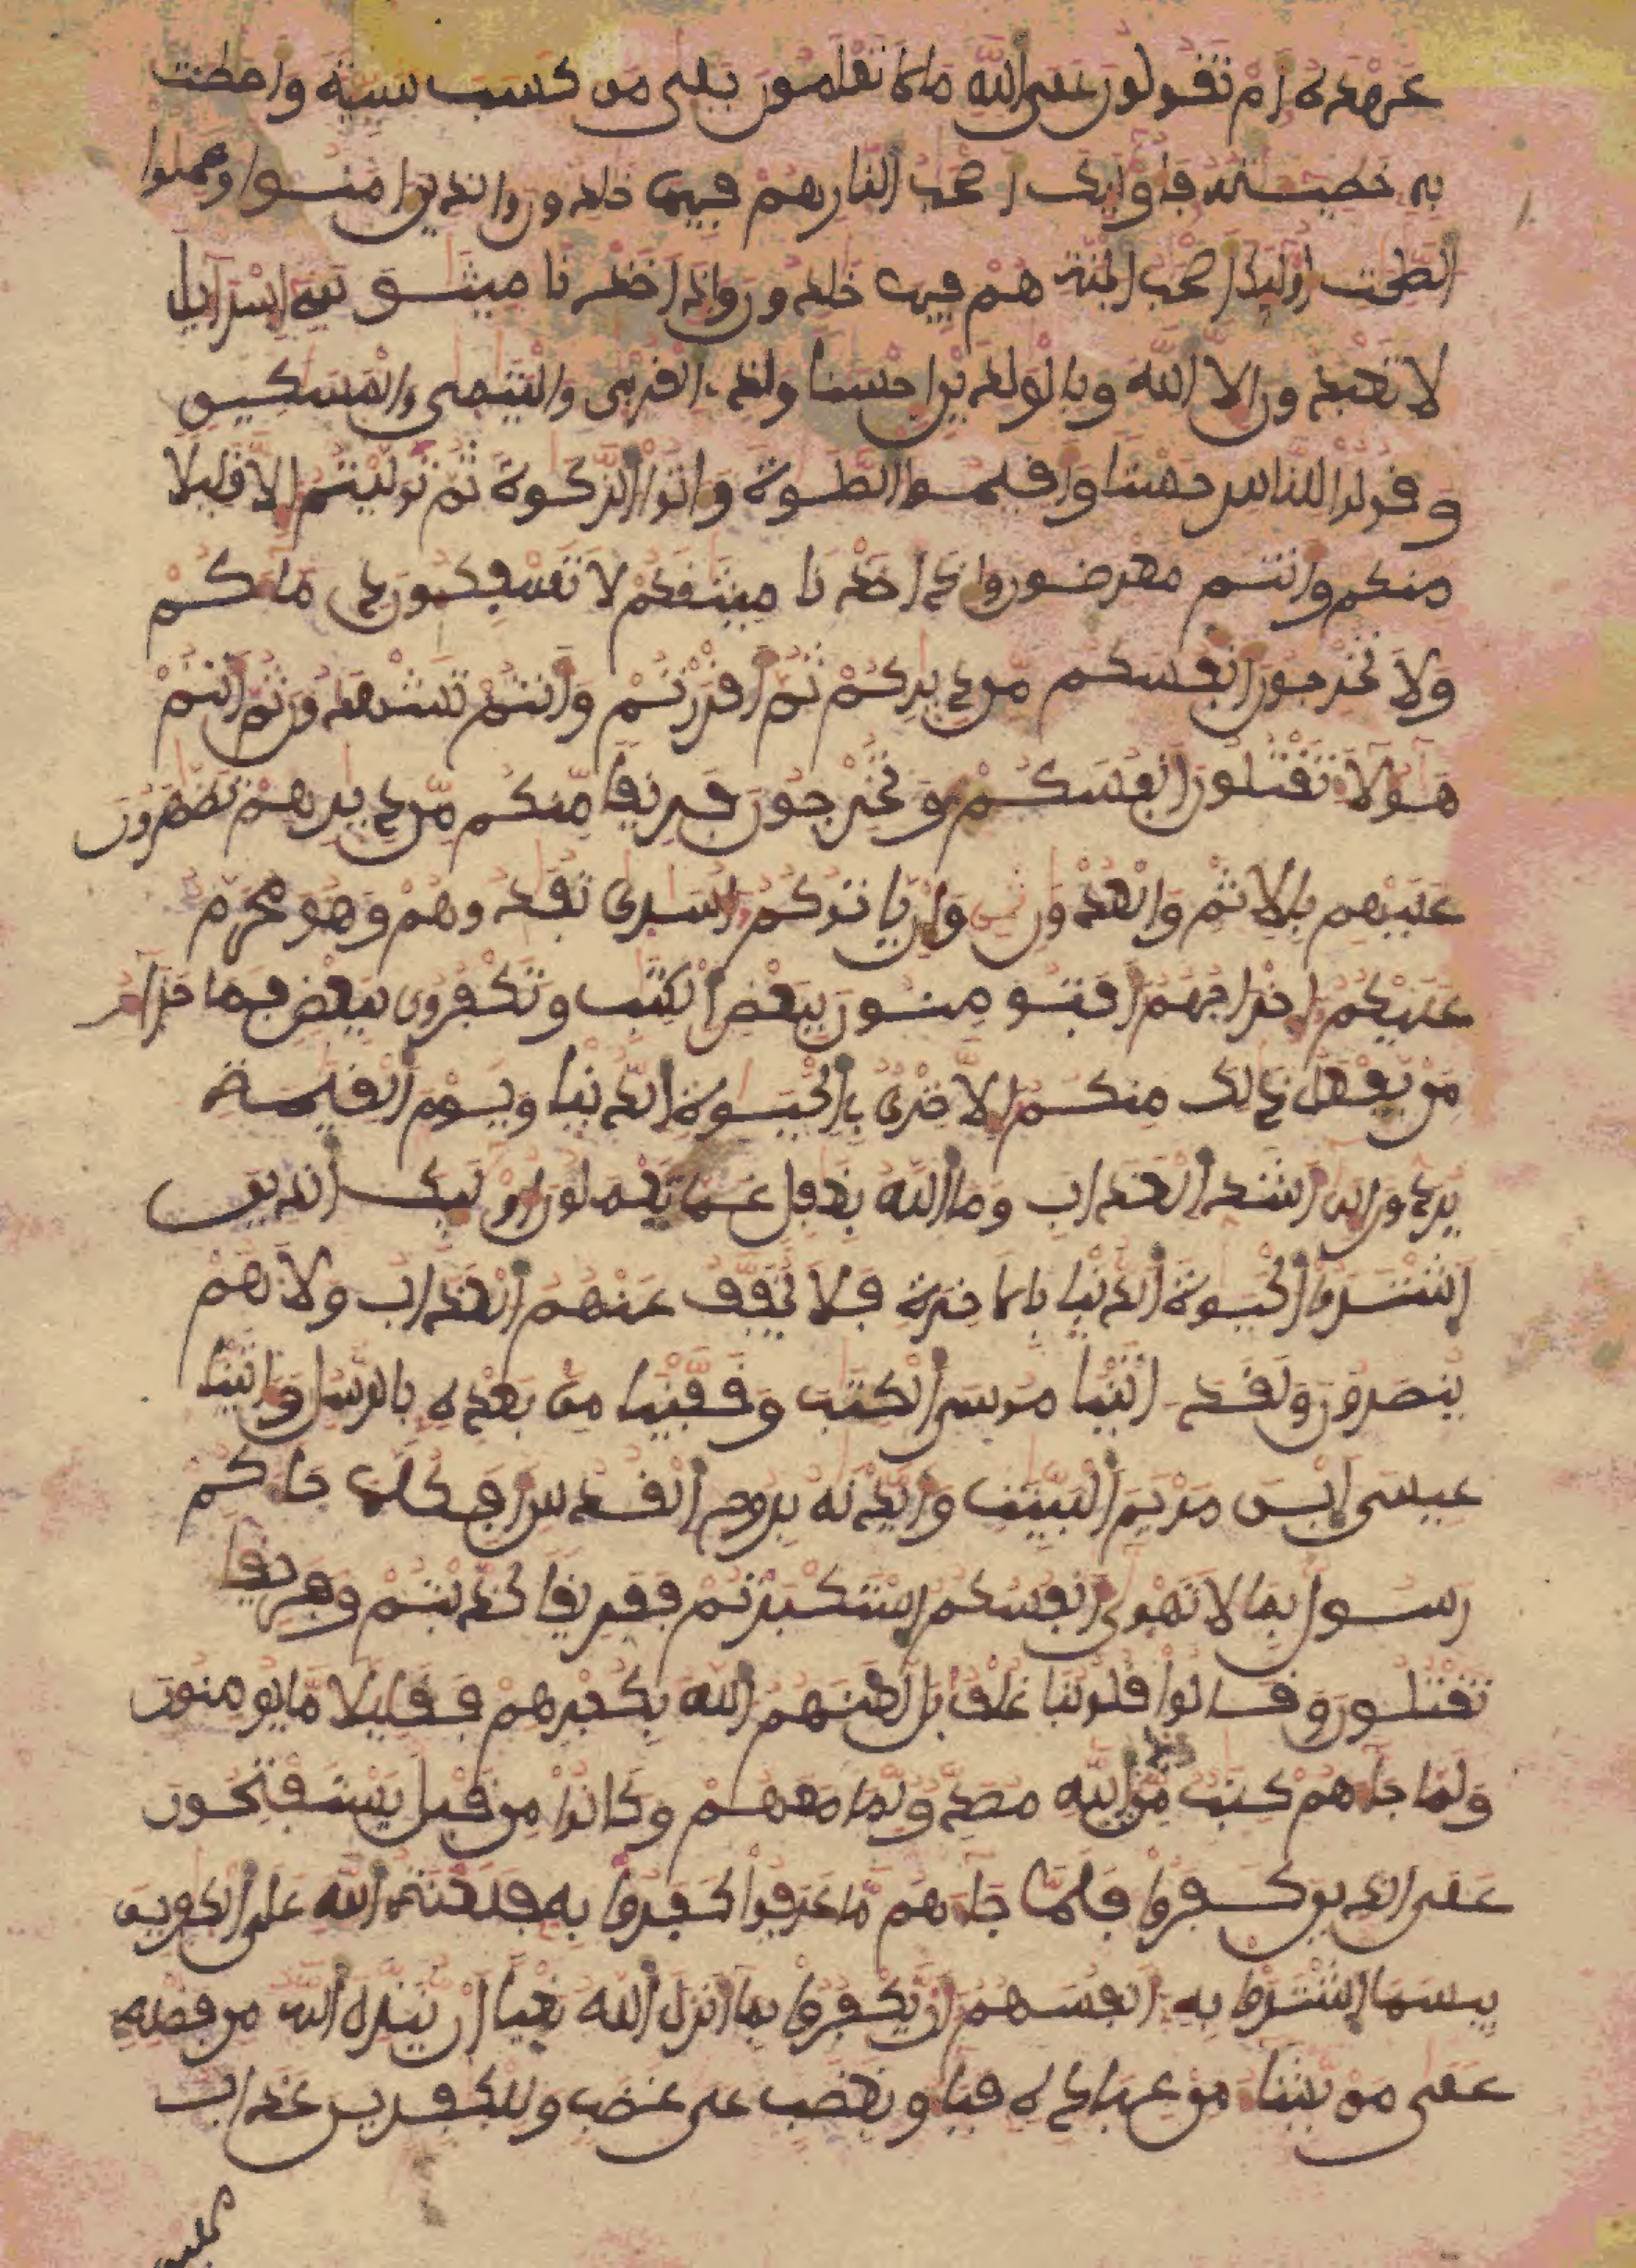 عهده أم تقولون على الله ما لا تعلمون بلى من كسب سيئة وأحطت
به خطيئته فأولئك أصحب النار هم فيها خلدون والذين ءامنوا وعملوا
الصلحت أولئك أصحب الجنة هم فيها خلدون وإذ أخذنا ميثق بني إسراءيل
لا تعبدون إلا الله وبالولدين إحسنا وذي القربى واليتمى والمسكين
وقولوا للناس حسنا وأقيموا الصلوة وءاتوا الزكوة ثم توليتم إلا قليلا
منكم وأنتم معرضون وإذ أخذنا ميثقكم لا تسفكون دماءكم
ولا تخرجون أنفسكم من ديركم ثم أقررتم وأنتم تشهدون ثم أنتم
هؤلاء تقتلون أنفسكم وتخرجون فريقا منكم من ديرهم تظهرون
عليهم بالإثم والعدون وإن يأتوكم أسرى تفدوهم وهو محرم
عليكم إخراجهم أفتؤمنون ببعض الكتب وتكفرون ببعض فما جزاء
من يفعل ذلك منكم إلا خزي في الحيوة الدنيا ويوم القيمة
يردون إلى أشد العذاب وما الله بغفل عما تعملون أولئك الذين
اشتروا الحيوة الدنيا بالأخرة فلا يخفف عنهم العذاب ولا هم
ينصرون ولقد ءاتينا موسى الكتب وقفينا من بعده بالرسل وءاتينا
عيسى ابن مريم البينت وأيدنه بروح القدس أفكلما جاءكم
رسول بما لا تهوى أنفسكم استكبرتم ففريقا كذبتم وفريقا
تقتلون وقالوا قلوبنا غلف بل لعنهم الله بكفرهم فقليلا ما يؤمنون
ولما جاءهم كتب من عند الله مصدق لما معهم وكانوا من قبل يستفتحون
على الذين كفروا فلما جاءهم ما عرفوا كفروا به فلعنة الله على الكفرين
بيسما اشتروا به أنفسهم أن يكفروا بما أنزل الله بغيا أن ينزل الله من فضله
على من يشاء من عباده فباءو بغضب على غضب وللكفرين عذاب